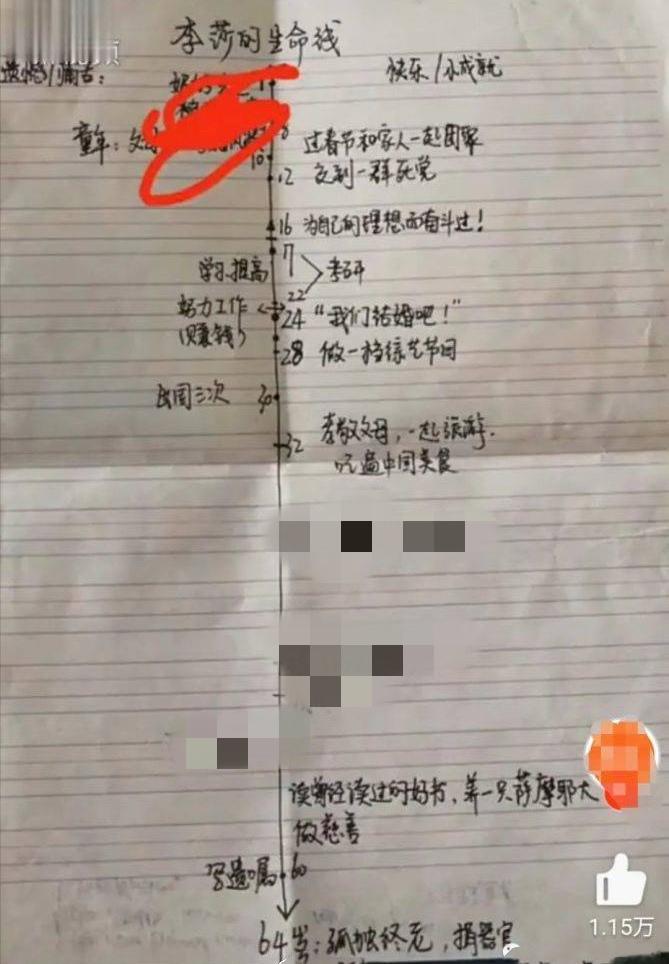 李莎的生命线
遗憾/痛苦：
快乐/小成就
童年：父
8
过春节和家人一起团聚
10
12 交到一群死党
16 为自己的理想而奋斗过！
17
学习提高
考研
22
努力工作
(赚钱)
24 “我们结婚吧！”
28 做一档综艺节目
出国三次 30
32 孝敬父母，一起旅游.
吃遍中国美食
读曾经读过的好书，养一只萨摩耶犬
做慈善
写遗嘱 60
64岁：孤独终老，捐器官
1.15万